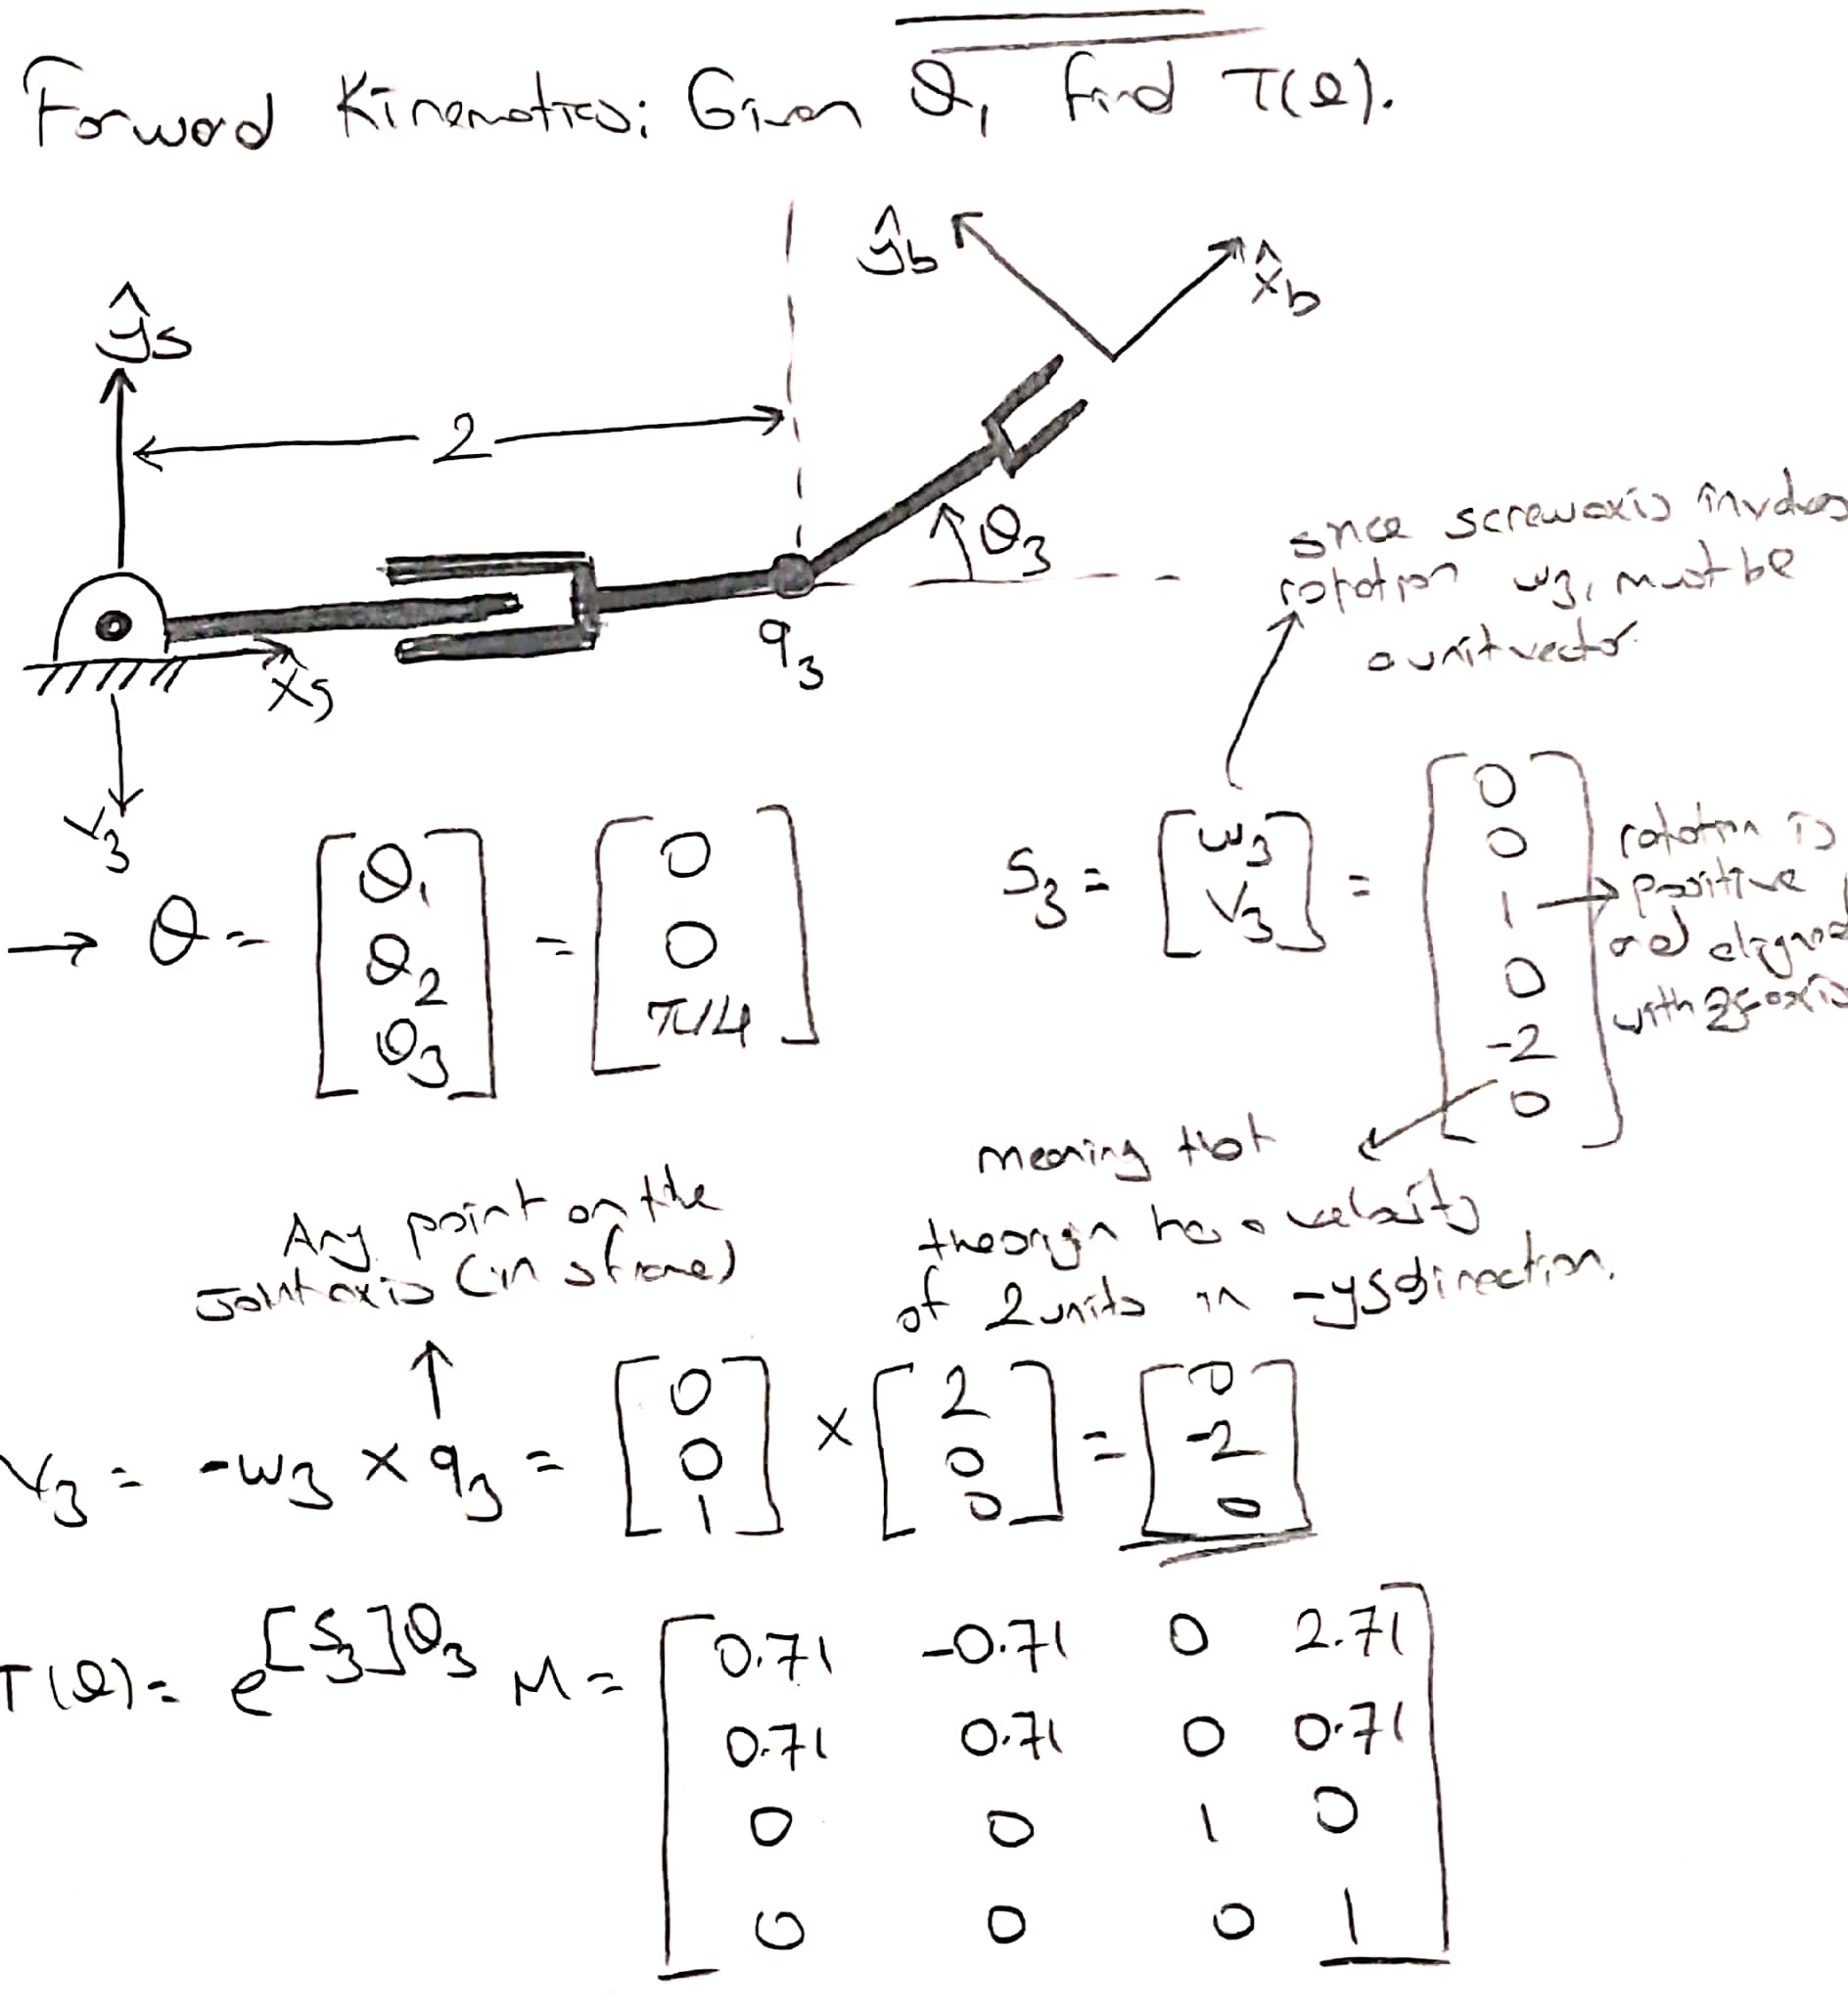 Forward Kinematics: Given θ, find T(θ).
ŷb
x̂b
ŷs
2
θ3
q3
x̂s
v3
since screwaxis involves
rotation w3, must be
a unit vector.
→ θ = [θ1 θ2 θ3] = [0 0 π/4]
S3 = [w3 v3] = [0 0 1 0 -2 0]
rotation is
positive
and aligned
with zs axis
meaning that
the origin has a velocity
of 2 units in -ys direction.
Any point on the
Joint axis (in s frame)
v3 = -w3 × q3 = [0 0 1] × [2 0 0] = [0 -2 0]
T(θ) = e^[S3]θ3 M =
0.71 -0.71 0 2.71
0.71 0.71 0 0.71
0 0 1 0
0 0 0 1